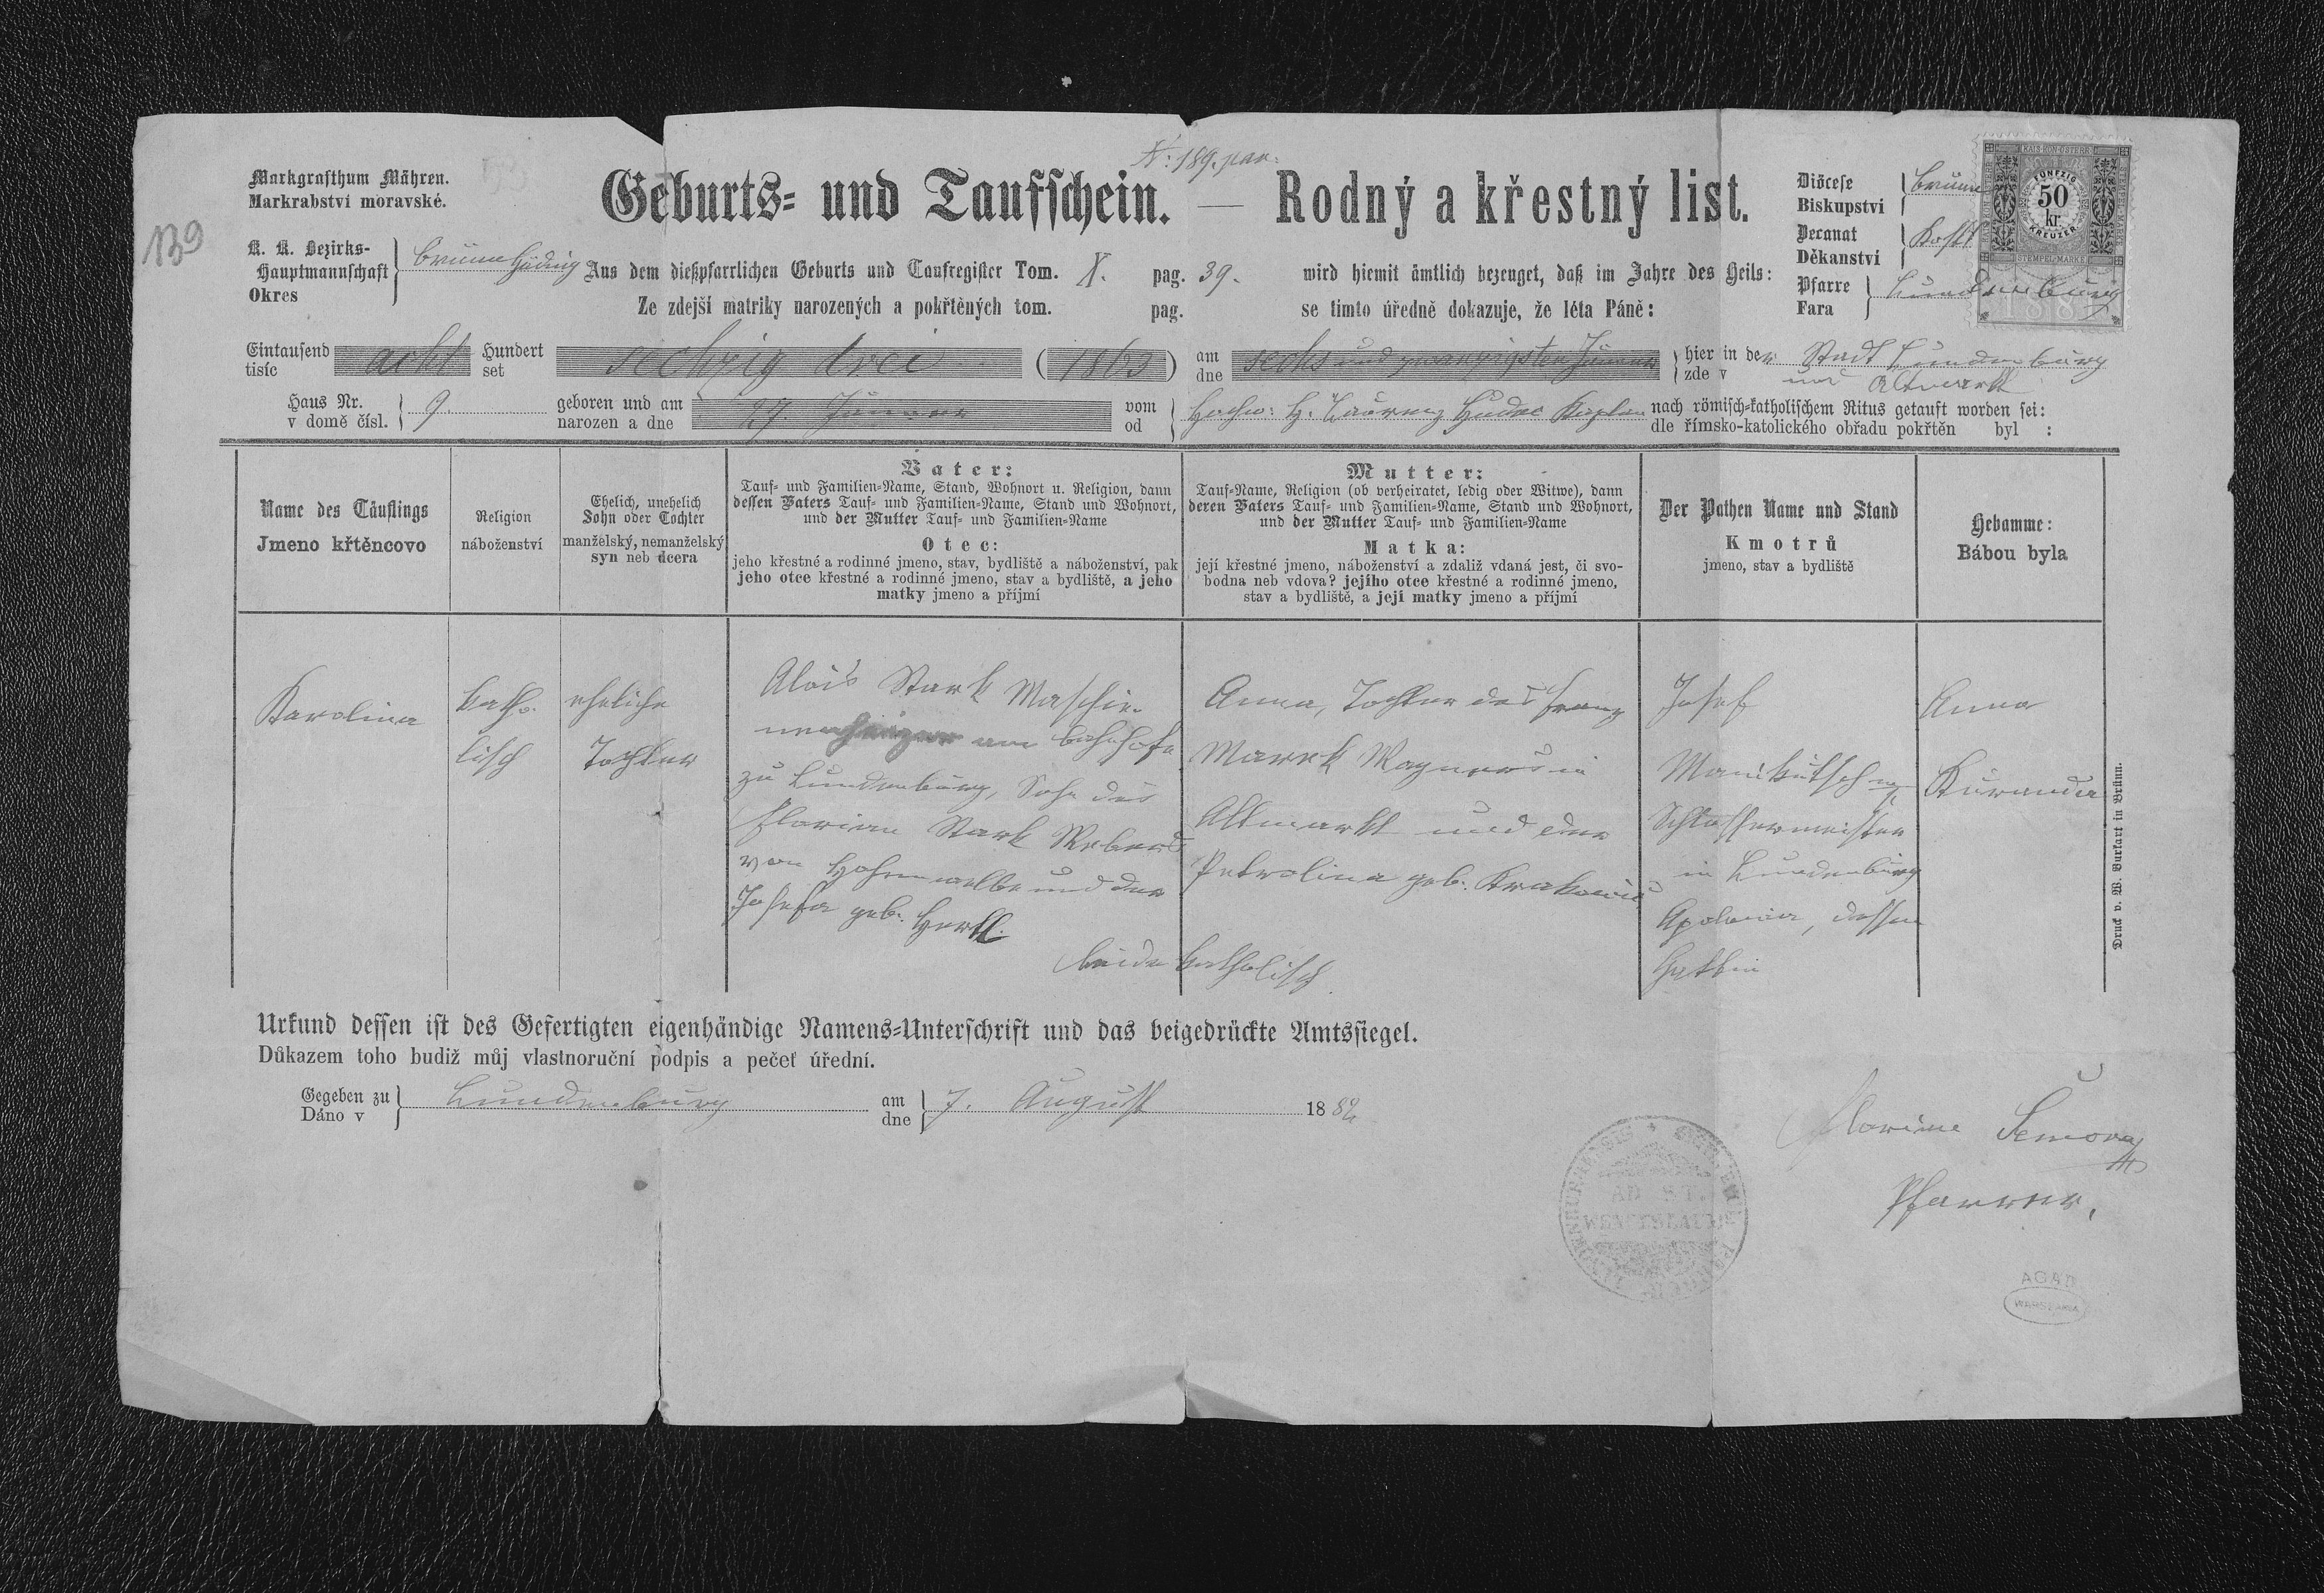 N: 189. par.
139
Markgrafthum Mähren.
Markrabství moravské.
Geburts= und Taufschein. — Rodný a křestný list.
Diöcese
Biskupství
Brünn
Decanat
Děkanství
Pfarre
Fara
Lundenburg
KAIS. KÖN. ÖSTERR.
FÜNFZIG
50
kr.
KREUZER
STEMPEL-MARKE
K. K. Bezirks-
Hauptmannschaft
Okres
Göding
Aus dem dießpfarrlichen Geburts und Taufregister Tom. X. pag. 39. wird hiemit ämtlich bezeuget, daß im Jahre des Heils:
Ze zdejší matriky narozených a pokřtěných tom. pag. se timto úředně dokazuje, že léta Páně:
Eintausend acht Hundert sechzig drei (1863) am sechs und zwanzigsten Jänner hier in der Stadt Lundenburg
tisíc set dne zde v und Altmarkt
Haus Nr. 9. geboren und am 27 Jänner vom Hochw: H. Laurenz Hudec Kaplan nach römisch=katholischem Ritus getauft worden sei:
v domě čísl. narozen a dne od dle římsko-katolického obřadu pokřtěn byl :
Name des Täuflings
Jmeno křtěncovo
Religion
náboženství
Ehelich, unehelich
Sohn oder Tochter
manželský, nemanželský
syn neb dcera
Vater:
Tauf= und Familien=Name, Stand, Wohnort u. Religion, dann
dessen Vaters Tauf= und Familien=Name, Stand und Wohnort,
und der Mutter Tauf= und Familien=Name
Otec:
jeho křestné a rodinné jmeno, stav, bydliště a náboženství, pak
jeho otce křestné a rodinné jmeno, stav a bydliště, a jeho
matky jmeno a příjmí
Mutter:
Tauf=Name, Religion (ob verheiratet, ledig oder Witwe), dann
deren Vaters Tauf= und Familien=Name, Stand und Wohnort,
und der Mutter Tauf= und Familien=Name
Matka:
její křestné jmeno, náboženství a zdaliž vdaná jest, či svo-
bodna neb vdova? jejího otce křestné a rodinné jmeno,
stav a bydliště, a její matky jmeno a příjmí
Der Pathen Name und Stand
Kmotrů
jmeno, stav a bydliště
Hebamme:
Bábou byla
Karolina
katho-
lisch
eheliche
Tochter
Alois Stark Maschi-
nenheizer am Bahnhofe
zu Lundenburg, Sohn des
Florian Stark Webers
von und der
Josefa geb. Hertl.
Anna, Tochter des Franz
Marek Wagners in
Altmarkt und der
Petrolina geb.
beide katholisch
Josef
Schlossermeister
in Lundenburg
Apolonia, dessen
Gattin
Anna
Kuranda
Druck v. W. Burkart in Brünn.
Urkund dessen ist des Gefertigten eigenhändige Namens=Unterschrift und das beigedrückte Amtssiegel.
Důkazem toho budiž můj vlastnoruční podpis a pečeť úřední.
Gegeben zu Lundenburg am 7. August 1882
Dáno v dne
Florian
Pfarrer.
AD ST.
WENCESLAUM
AGAD
WARSZAWA